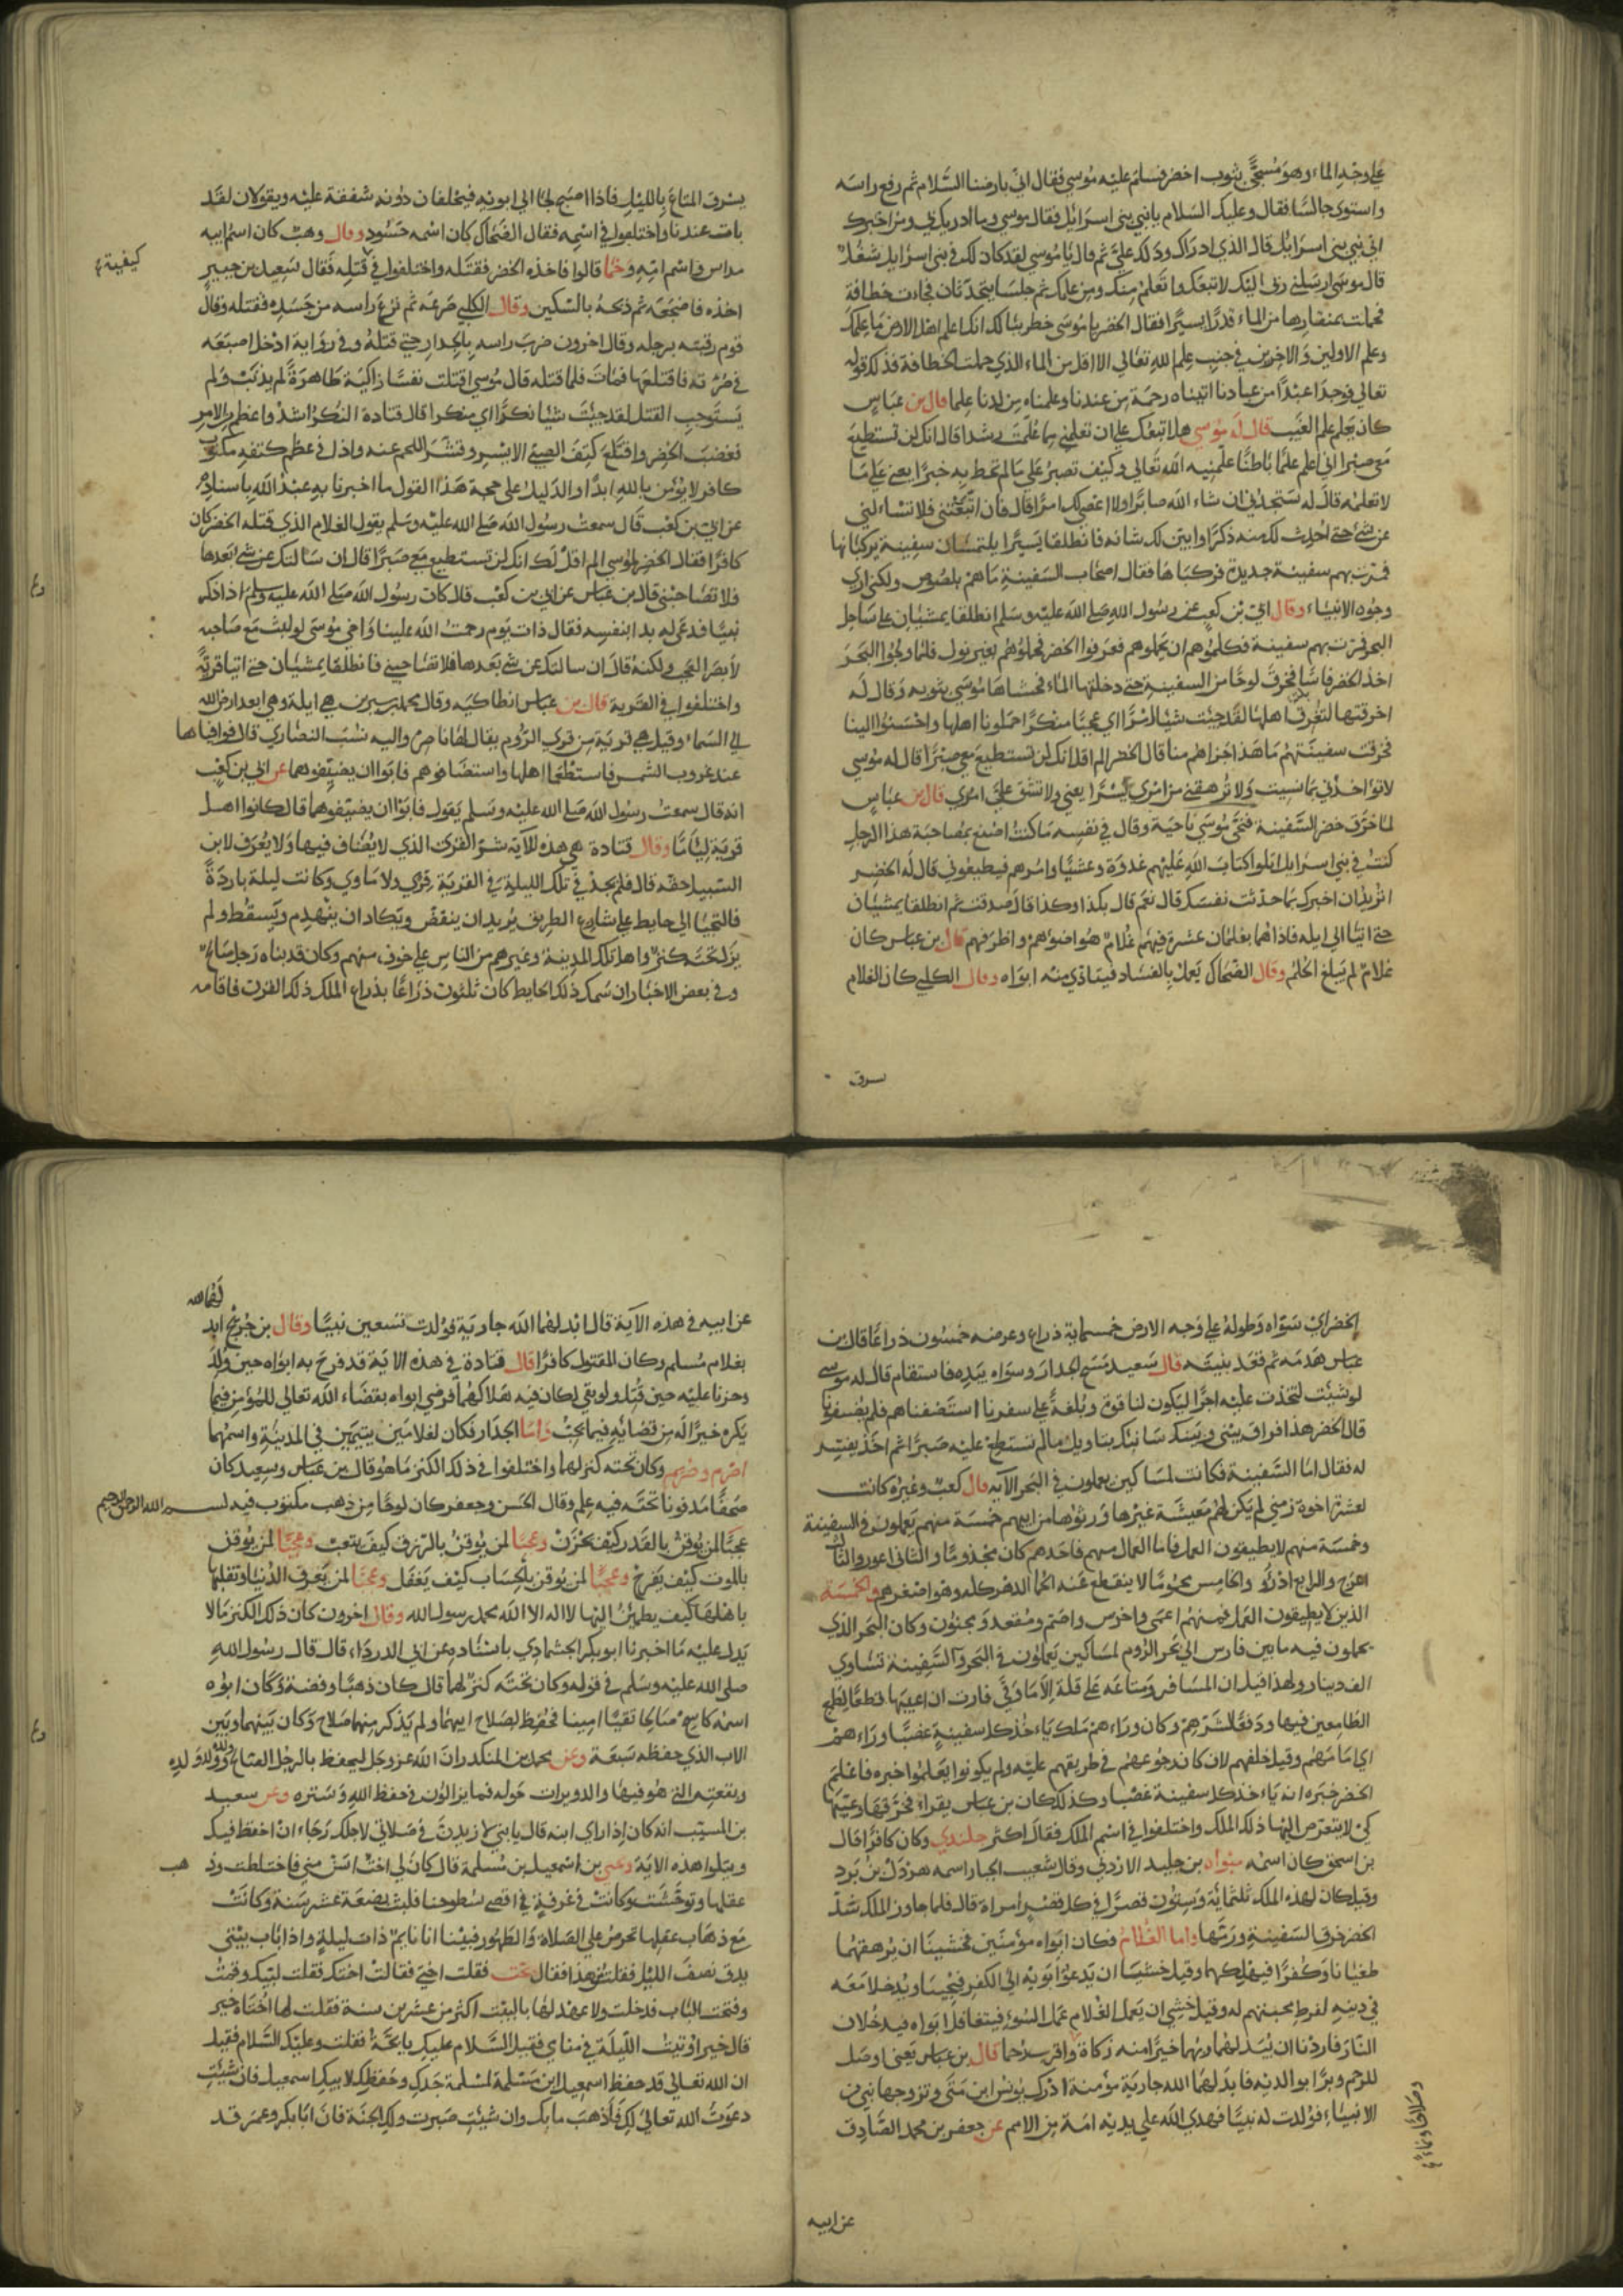 على وجه الماء وهو مسجّى بثوب اخضر فسلم عليه موسى فقال انّي بارضنا السّلام ثم رفع راسه
واستوى جالسًا فقال وعليك السلام يا نبي بني اسرائيل فقال موسى وما ادريك بي ومن اخبرك
اني نبي بني اسرائيل قال الذي ادراك ودلك عليّ ثم قال يا موسى لقد كان لك في بني اسرايل شغل
قال موسى ارسلني ربي اليك لاتبعك واتعلم منك ومن علمك ثم جلسا يتحدثان فجاءت خطافة
فحملت بمنقارها من الماء قدرًا يسيرًا فقال الخضر يا موسى خطر ببالك انك اعلم اهل الارض ما علمك
وعلم الاولين والاخرين في جنب علم الله تعالى الا اقل من الماء الذي حملت الخطافة فذلك قوله
تعالى فوجدا عبدًا من عبادنا اتيناه رحمة من عندنا وعلمناه من لدنا علما قال بن عباس
كان يعلم علم الغيب قال له موسى هل اتبعك على ان تعلمني مما علمت رشدا قال انك لن تستطيع
معي صبرا اني اعلم علمًا باطنًا علمنيه الله تعالى وكيف تصبر على ما لم تحط به خبرًا يعني على ما
لا تعلمه قال له ستجدني ان شاء الله صابرًا ولا اعصي لك امرًا قال فان اتبعتني فلا تسئلني
عن شئ حتى احدث لك منه ذكرًا وابين لك شانه فانطلقا يسيرًا يلتمسان سفينة يركبانها
فمرت بهم سفينة جديدة فركباها فقال اصحاب السفينة ما هم بلصوص ولكني ارى
وجوه الانبياء وقال ابي بن كعب عن رسول الله صلى الله عليه وسلم انطلقا يمشيان على ساحل
البحر فمرت بهم سفينة فكلموهم ان يحملوهم فعرفوا الخضر فحملوهم بغير نول فلما ولجوا البحر
اخذ الخضر فاسًا فخرق لوحًا من السفينة حتى دخلتها الماء فحشاها موسى بثوبه وقال له
اخرقتها لتغرق اهلها لقد جئت شيئا امرًا اي عجبًا منكرًا احملونا اهلها واحسنوا الينا
فخرقت سفينتهم ما هذا جزاهم منا قال الخضر الم اقل انك لن تستطيع معي صبرًا قال له موسى
لا تؤاخذني بما نسيت ولا ترهقني من امري عسرًا يعني ولا تشق عليّ امري قال بن عباس
لما خرق خضر السفينة فتحّى موسى ناحية وقال في نفسه ما كنت اصنع بمصاحبة هذا الرجل
كنت في بني اسرايل اتلوا كتاب الله عليهم غدوة وعشيًا وامرهم فيطيعوني قال له الخضر
اتريد ان اخبرك بما حدثت نفسك قال نعم قال بكذا وكذا قال صدقت ثم انطلقا يمشيان
حتى اتيا الى ايلة فاذا هما بغلمان عشرة فيهم غلام هو اضوءهم واظرفهم قال بن عباس كان
غلام لم يبلغ الحلم وقال الضحاك يعمل بالفساد فيتاذي منه ابواه وقال الكلبي كان الغلام
سرق
يسرق المتاع بالليل فاذا اصبح لجا الى ابويه فيحلفان دونه شفقة عليه ويقولان لقد
بات عندنا واختلفوا في اسمه فقال الضحاك كان اسمه حسنود وقال وهب كان اسم ابيه
ملاس واسم امه رحما قالوا فاخذه الخضر فقتله واختلفوا في قتله فقال سعيد بن جبير
كيفية
اخذه فاضجعه ثم ذبحه بالسكين وقال الكلبي صرعه ثم نزع راسه من جسده فقتله وقال
قوم رفسه برجله وقال اخرون ضرب راسه بالجدار حتى قتله وفي رواية ادخل اصبعه
في سرته فاقتلعها فمات فلما قتله قال موسى اقتلت نفسًا زاكية طاهرة لم يذنب ولم
يستوجب القتل لقد جئت شيئا نكرًا اي منكرا قال قتادة النكر اشد واعظم من الامر
فغضب الخضر واقتلع كتف الصبي الايسر وقشر اللحم عنه واذا في عظم كتفه مكتوب
كافر لا يؤمن بالله ابدًا والدليل على صحة هذا القول ما اخبرنا به عبد الله باسناده
عن ابي بن كعب قال سمعت رسول الله صلى الله عليه وسلم يقول الغلام الذي قتله الخضر كان
كافرًا فقال الخضر لموسى الم اقل لك انك لن تستطيع معي صبرًا قال ان سالتك عن شئ بعدها
فلا تصاحبني قال بن عباس عن ابي بن كعب قال كان رسول الله صلى الله عليه وسلم اذا ذكر
نبيًا فدعى له بدا بنفسه فقال ذات يوم رحمت الله علينا وأخي موسى لو لبث مع صاحبه
لابصر العجب ولكنه قال ان سالتك عن شئ بعدها فلا تصاحبني فانطلقا يمشيان حتى اتيا قرية
واختلفوا في القرية قال بن عباس انطاكيه وقال محمد بن سيرين هي ايلة وهي ابعد ارض الله
الى السماء وقيل هي قرية من قرى الروم يقال لها ناصرة واليه نسب النصارى قالوا فوافياها
عند غروب الشمس فاستطعما اهلها واستضافوهم فابوا ان يضيفوهما عن ابي بن كعب
انه قال سمعت رسول الله صلى الله عليه وسلم يقول فابوا ان يضيفوهما قال كانوا اهل
قرية لئامًا وقال قتادة في هذه الآية شر القرى الذي لا يضاف فيها ولا يعرف لابن
السبيل حقه قال فلم يجد في تلك الليلة في القرية قرى ولا ماوى وكانت ليلة باردة
فالتجيا الى حايط على شارع الطريق يريد ان ينقض ويكاد ان ينهدم ويسقط ولم
يزل تحته كنز واهل تلك المدينة وغيرهم من الناس على خوف منهم وكان قد بناه رجل صالح
وفي بعض الاخبار ان سمك ذلك الحايط كان ثلثون ذراعًا بذراع الملك ذلك القرن فاقامه
الخضر اي سواه وطوله على وجه الارض خمسماية ذراع وعرضه خمسون ذراعًا قال بن
عباس هدمه ثم قعد يبنيه قال سعيد مسح الجدار وسواه بيده فاستقام قال له موسى
لو شئت لتخذت عليه اجرًا ليكون لنا قوة وبلغة على سفرنا استضفناهم فلم يضيفونا
قال الخضر هذا فراق بيني وبينك سانبئك بتاويل ما لم تستطع عليه صبرًا ثم اخذ يفسر
له فقال اما السفينة فكانت لمساكين يعملون في البحر الآية قال كعب وغيره كانت
لعشرة اخوة زمنى لم يكن لهم معيشة غيرها ورثوها من ابيهم خمسة منهم يعملون في السفينة
وخمسة منهم لا يطيقون العمل فاما العمال منهم فاحدهم كان مجذومًا والثاني اعور والثالث
اعرج والرابع ادر والخامس محمومًا لا ينقطع عنه الحما الدهر كله وهو اصغرهم والخمسة
الذين لا يطيقون العمل فمنهم اعمى واخرس واصم ومقعد ومجنون وكان البحر الذي
يعملون فيه ما بين فارس الى بحر الروم لمساكين يعملون في البحر والسفينة تساوي
الف دينار ولهذا قيل ان المسافر ومتاعه على قلة الا ما وقى فاردت ان اعيبها قطعًا لطمع
الطامعين فيها ودفعًا لشرهم وكان وراءهم ملك ياخذ كل سفينة غصبًا وراءهم
اي امامهم وقيل خلفهم لان كان رجوعهم في طريقهم عليه ولم يكونوا يعلموا خبره فاعلم
الخضر خبره انه ياخذ كل سفينة غصبًا وكذلك كان بن عباس يقراء فخرقها وعيبها
كي لا يتعرض اليها ذلك الملك واختلفوا في اسم الملك فقال اكثر جلندي وكان كافرًا قال
بن اسحق كان اسمه منواه بن جليد الازدي وقال شعيب الجبا اسمه هردك بن برد
وقيل كان لهذه الملك ثلثماية وستون قصرًا في كل قصر امراة قال فلما جاوز الملك شد
الخضر خرق السفينة ورمها واما الغلام فكان ابواه مؤمنين فخشينا ان يرهقهما
طغيانا وكفرًا فيهلكهما وقيل خشينا ان يدعوا ابويه الى الكفر فيجيبا ويدخلا معه
في دينه لفرط محبتهم له وقيل خشى ان يعمل الغلام عمل السوء فيتغافلا ابواه فيدخلان
النار فاردنا ان يبدلهما ربهما خيرًا منه زكاة واقرب رحما قال بن عباس يعني اوصل
للرحم وبرًا بوالديه فابدلهما الله جارية مؤمنة ادرك يونس ابن متى وتزوجها نبي من
الانبياء فولدت له نبيًا فهدى الله على يديه امة من الامم عن جعفر بن محمد الصادق
عن ابيه
عن ابيه في هذه الآية قال ابدلهما الله جارية فولدت تسعين نبيًا وقال بن جريج ابد
لهما الله
بغلام مسلم وكان المقتول كافرًا قال قتادة في هذه الاية قد فرح به ابواه حين ولد
وحزنا عليه حين قتل ولو بقي لكان فيه هلاكهما فرضي ابواه بقضاء الله تعالى للمؤمن فيما
يكره خيرًا له من قضايه فيما يحب واما الجدار فكان لغلامين يتيمين في المدينة واسمهما
اصرم وصريم وكان تحته كنز لهما واختلفوا في ذلك الكنز ما هو قال بن عباس وسعيد كان
صحفًا مدفونا تحته فيه علم وقال الحسن وجعفر كان لوحًا من ذهب مكتوب فيه بسم الله الرحمن الرحيم
عجبًا لمن يوقن بالقدر كيف يحزن وعجبًا لمن يوقن بالرزق كيف يتعب وعجبًا لمن يوقن
بالموت كيف يفرح وعجبًا لمن يوقن بالحساب كيف يغفل وعجبًا لمن يعرف الدنيا وتقلبها
باهلها كيف يطمئن اليها لا اله الا الله محمد رسول الله وقال اخرون كان ذلك الكنز مالا
يدل عليه ما اخبرنا ابو بكر الجشادي باسناده عن ابي الدرداء قال قال رسول الله
صلى الله عليه وسلم في قوله وكان تحته كنز لهما قال كان ذهبًا وفضة وكان ابوه
اسمه كاسح صالحًا تقيًا امينا فحفظ لصلاح ابيهما ولم يذكر منهما صلاح وكان بينهما وبين
الاب الذي حفظه سبعة وعن محمد بن المنكدر ان الله عز وجل ليحفظ بالرجل الصالح ولده وولد ولده
وبقعته التي هو فيها والدويرات حوله فما يزالون في حفظ الله وستره وعن سعيد
بن المسيب انه كان اذا راى ابنه قال يا بني لازيدن في صلاتي لاجلك رجاء ان احفظ فيك
ويتلوا هذه الاية وعن بن اسمعيل بن مسلمة قال كان لي اخت اسن مني فاختلطت وذهب
عقلها وتوحشت وكانت في غرفة في اقصى سطوحنا فلبث بضعة عشر سنة وكانت
مع ذهاب عقلها تحرص على الصلاة والطهور فبينا انا نايم ذات ليلة واذا باب بيتي
يدق نصف الليل فقلت من هذا فقال تحت فقلت اختي فقالت اختك فقلت لبيك وقمت
وفتحت الباب فدخلت ولا عهد لها بالبيت اكثر من عشرين سنة فقلت لها اختاه خير
قال خيرا اوتيت الليلة في منامي فقيل السلام عليك يا تحت فقلت وعليك السلام فقيل
ان الله تعالى قد حفظ اسمعيل ابن مسلمة لمسلمة جدك وحفظك لابيك اسمعيل فان شئت
دعوت الله تعالى لك فاذهب ما بك وان شئت صبرت ولك الجنة فان ابا بكر وعمر قد